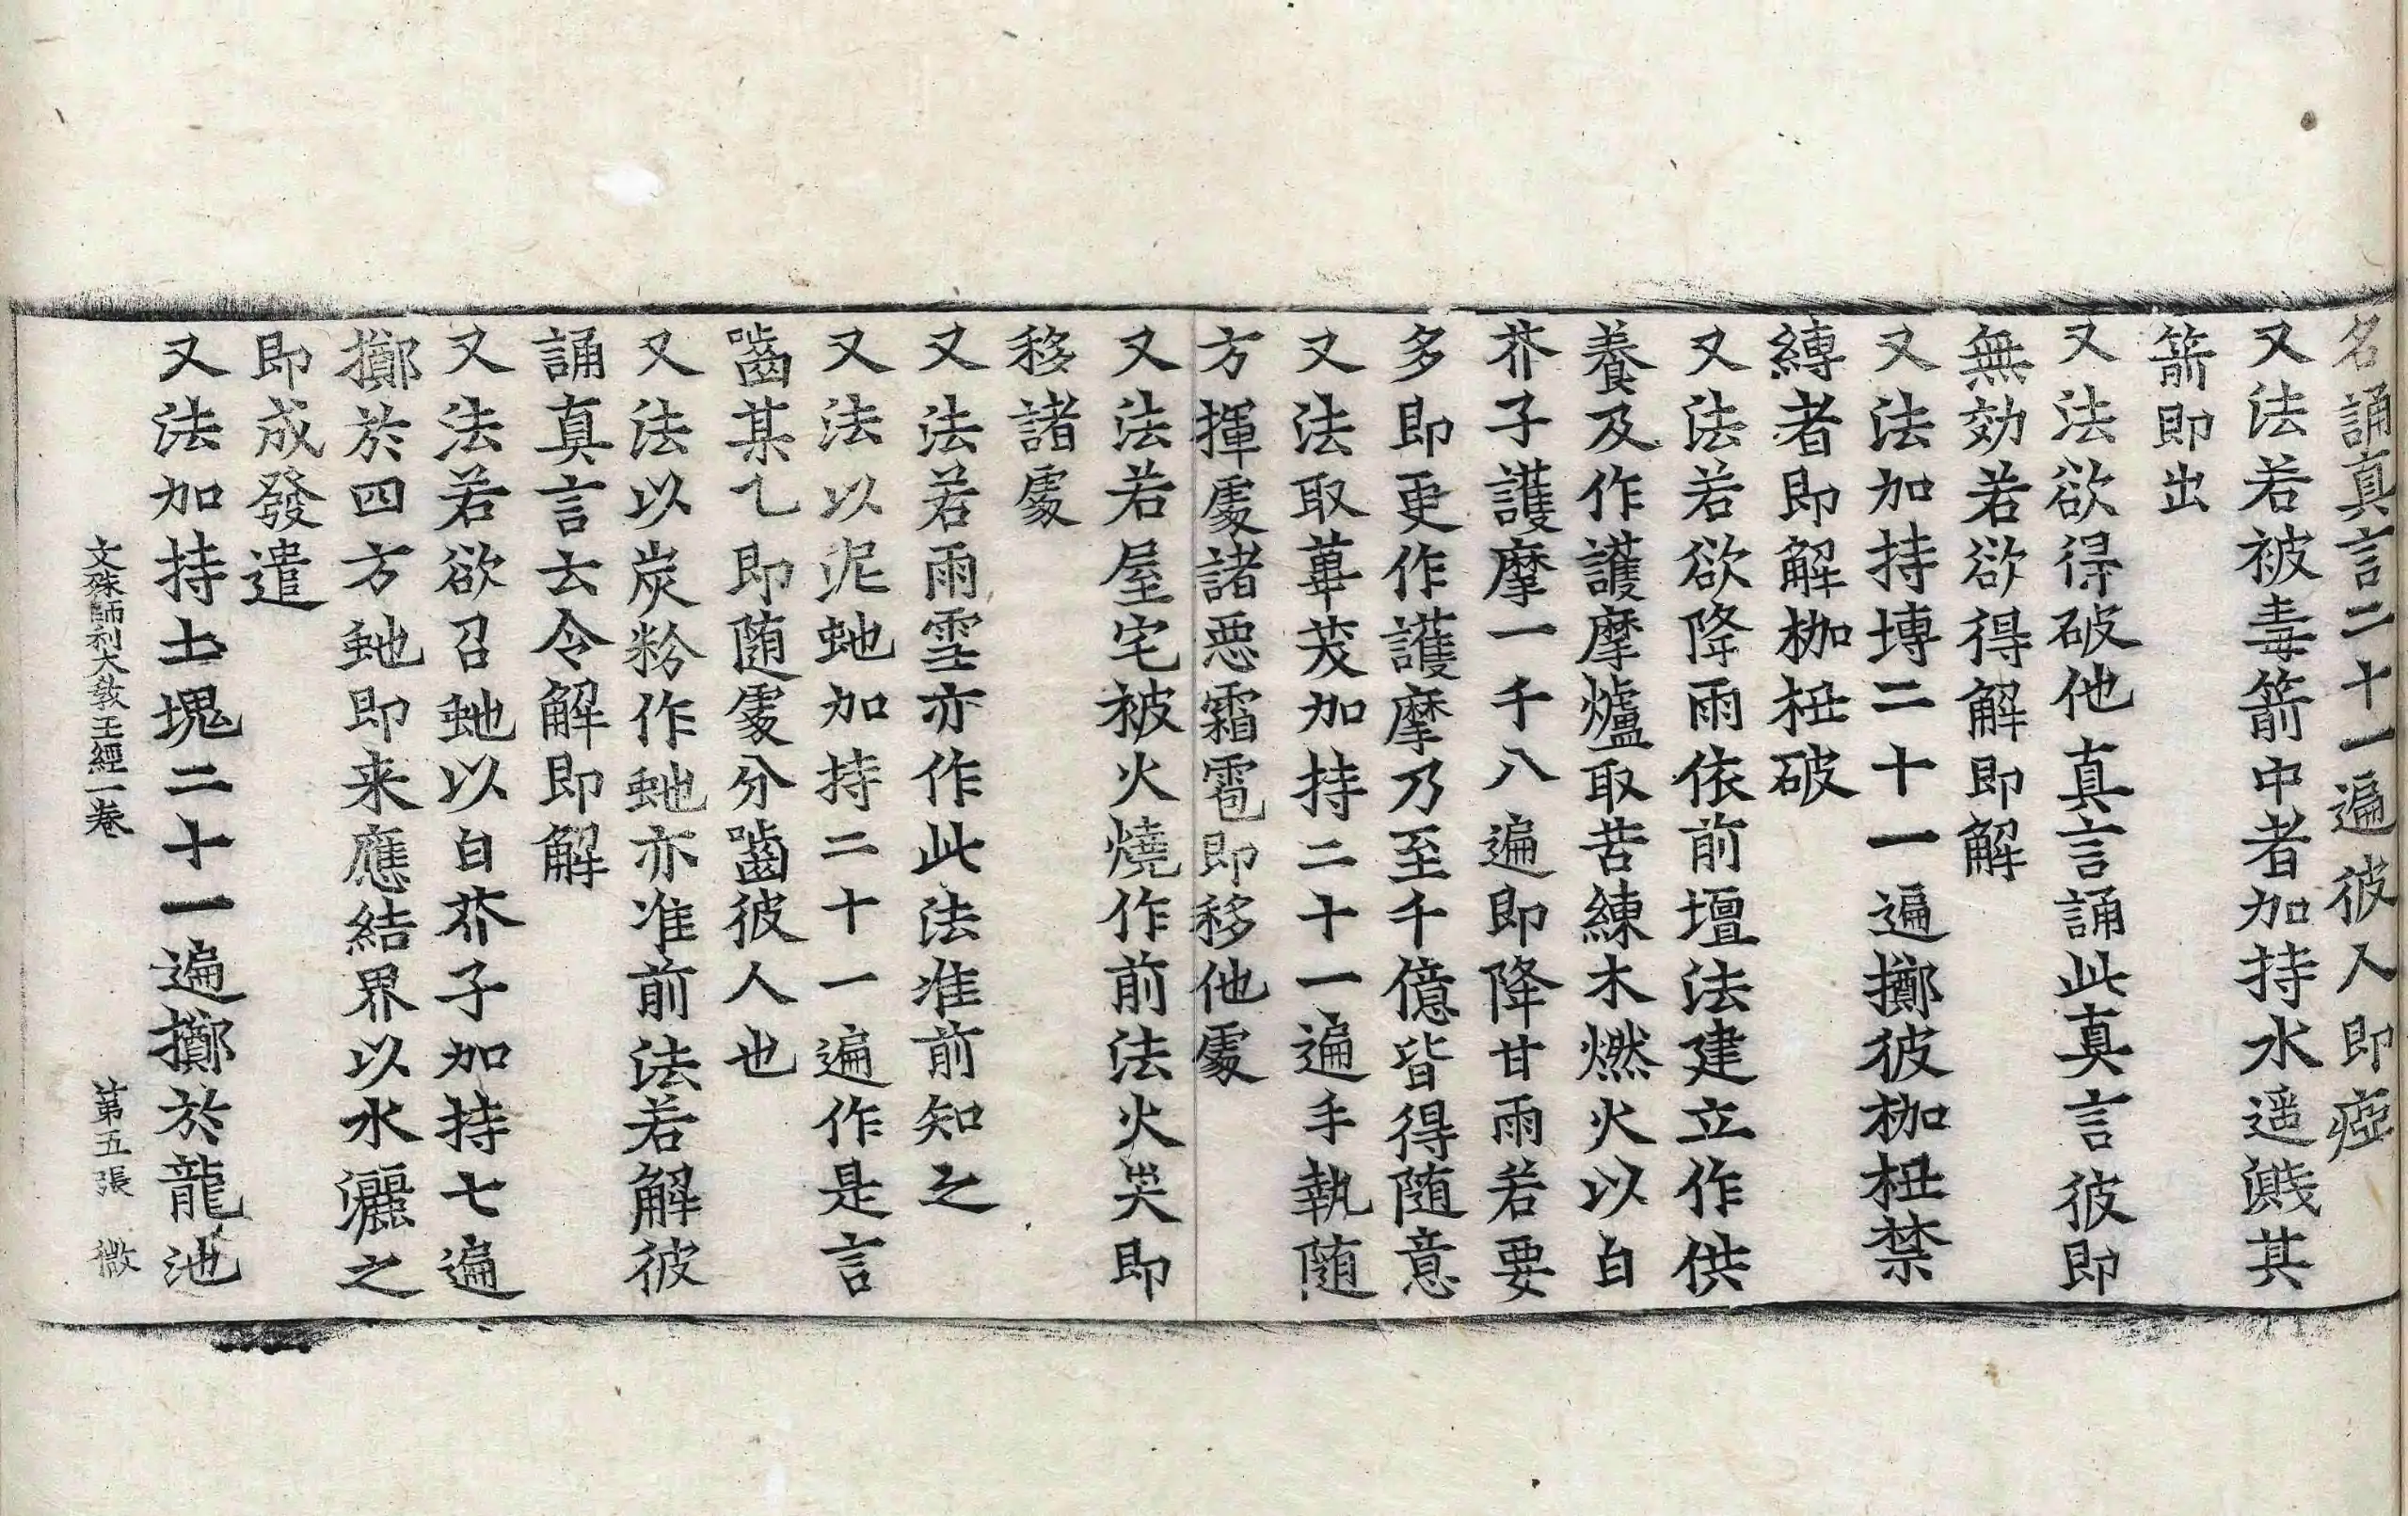 名誦真言二十一遍彼人即瘂
又法若被毒箭中者加持水遥濺其
箭即出
又法欲得破他真言誦此真言彼即
無効若欲得解即解
又法加持塼二十一遍擲彼枷杻禁
縛者即解枷杻破
又法若欲降雨依前壇法建立作供
養及作護摩爐取苦練木燃火以白
芥子護摩一千八遍即降甘雨若要
多即更作護摩乃至千億皆得随意
又法取蓽茇加持二十一遍手執随
方揮䖏諸惡霜雹即移他䖏
又法若屋宅被火燒作前法火㷓即
移諸䖏
又法若雨雪亦作此法准前知之
又法以泥虵加持二十一遍作是言
嚙某乙即随䖏分嚙彼人也
又法以炭粉作虵亦准前法若解彼
誦真言去令解即解
又法若欲召虵以白芥子加持七遍
擲於四方虵即来應結界以水灑之
即成發遣
又法加持土塊二十一遍擲於龍池
文殊師利大教王經一卷　第五張　微